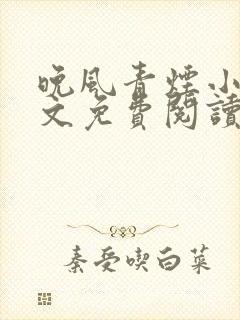 晚风青煙小
文免費閱讀
秦受喫白菜